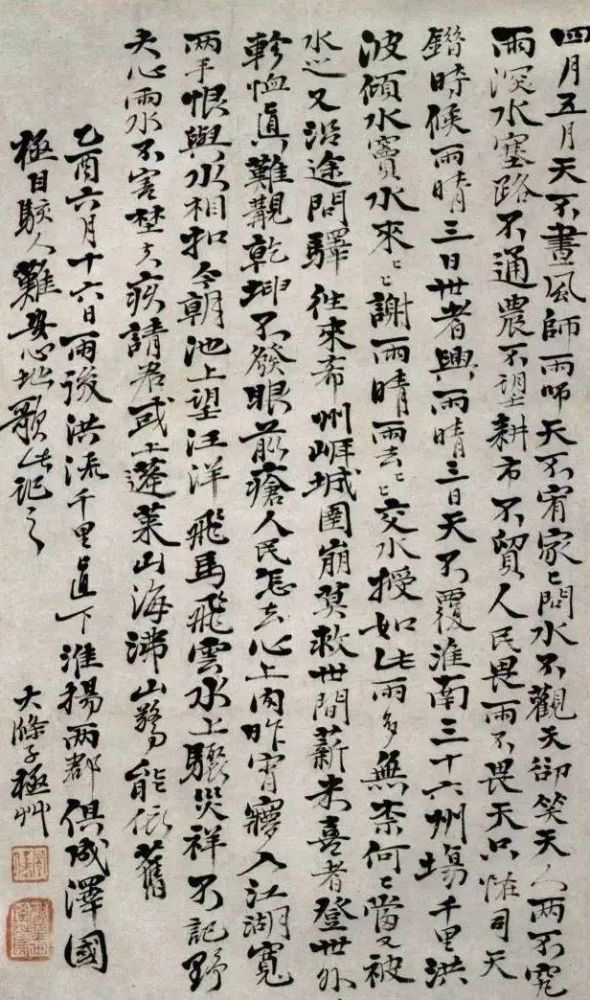 四月五月天不晝風師雨師天不宥家々問水不觀天卻笑天人兩不究
雨深水塞路不通農不望耕市不貿人民畏雨不畏天只怪司天
鐕時候雨晴三日世者興雨晴三日天不覆淮南三十六州塲千里洪
波傾水竇水來々々謝雨晴雨去々々交水授如此雨多無柰何々當又被
水又沿途問驛往來希州城圍崩莫救世間薪米喜者登世外
軫恤真難覯乾坤不發眼前瘡人民怎去心上肉昨宵夢入江湖寬
兩手恨與水相扣今朝池上望汪洋飛馬飛雲水上驟災祥不記野
夫心雨水不害埜夫疚請君或上蓬萊山海沸山驚能依舊
乙酉六月十六日雨後洪流千里直下淮揚兩郡俱成澤國
極目駭人難安心地歌此記之
大滌子極艸